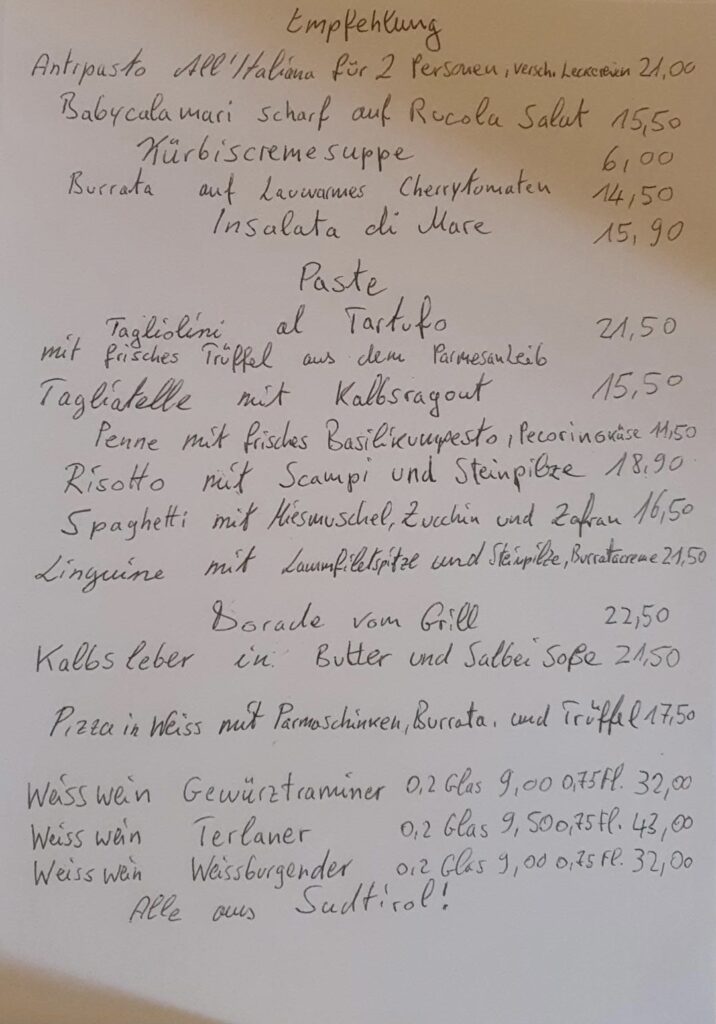 Empfehlung
Antipasto All'Italiana für 2 Personen, versch. Leckereien 21,00
Babycalamari scharf auf Rucola Salat 15,50
Kürbiscremesuppe 6,00
Burrata auf Lauwarmes Cherrytomaten 14,50
Insalata di Mare 15,90
Paste
Tagliolini al Tartufo 21,50
mit frisches Trüffel aus dem Parmesanleib
Tagliatelle mit Kalbsragout 15,50
Penne mit frisches Basilikumpesto, Pecorinokäse 11,50
Risotto mit Scampi und Steinpilze 18,90
Spaghetti mit Miesmuschel, Zucchin und Zafran 16,50
Linguine mit Lammfiletspitze und Steinpilze, Burratacreme 21,50
Dorade vom Grill 22,50
Kalbsleber in Butter und Salbei Soße 21,50
Pizza in Weiss mit Parmaschinken, Burrata. und Trüffel 17,50
Weisswein Gewürztraminer 0,2 Glas 9,00 0,75 Fl. 32,00
Weisswein Terlaner 0,2 Glas 9,50 0,75 Fl. 43,00
Weisswein Weissburgender 0,2 Glas 9,00 0,75 Fl. 32,00
Alle aus Sudtirol!